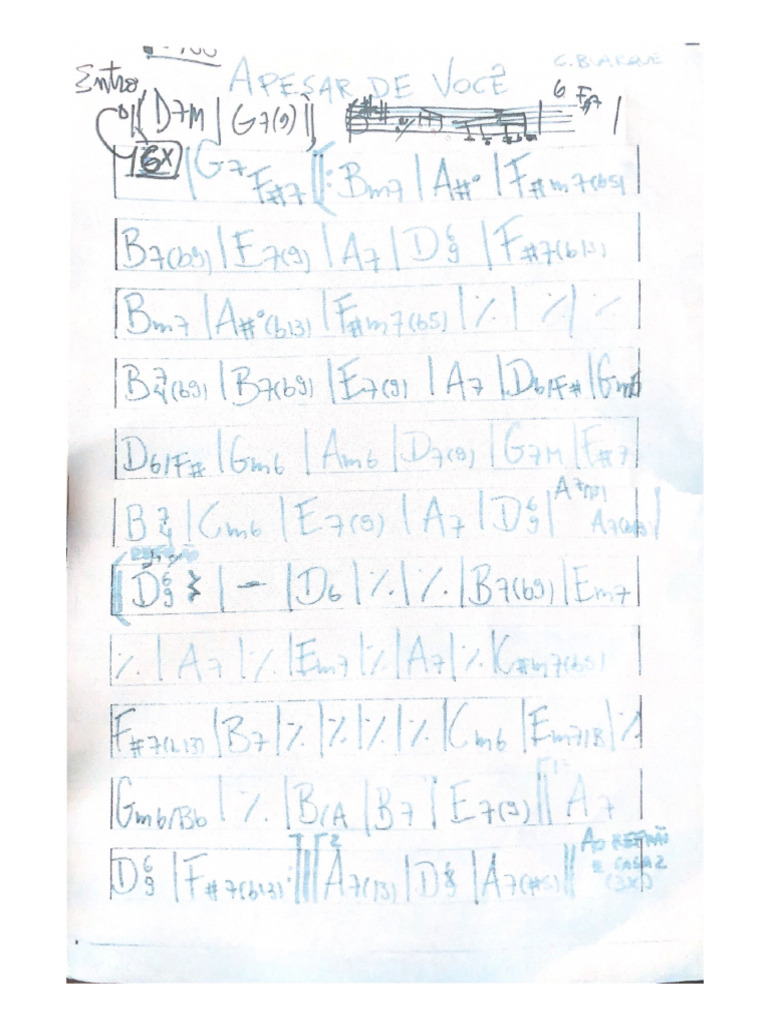 APESAR DE VOCÊ C. BUARQUE
Entro
|| D7M | G7(9) || 6 F#7 |
6X | G7 F#7 ||: Bm7 | A#° | F#m7(b5)
| B7(b9) | E7(9) | A7 | D6/9 | F#7(b13)
| Bm7 | A#°(b13) | F#m7(b5) | ٪ | ٪ | ٪
| B7/4(b9) | B7(b9) | E7(9) | A7 | D6/F# | Gm6
| D6/F# | Gm6 | Am6 | D7(9) | G7M | F#7
| B7/4 | Cm6 | E7(9) | A7 | D6/9 | A7
REFRÃO
|| D6/9 𝄽 | - | D6 | ٪ | ٪ | B7(b9) | Em7
| ٪ | A7 | ٪ | Em7 | ٪ | A7 | ٪ | C#m7(b5)
| F#7(b13) | B7 | ٪ | ٪ | ٪ | ٪ | Cm6 | Em7/B | ٪
| Gm6/Bb | ٪ | B/A | B7 | E7(9) || A7
| D6/9 | F#7(b13) :|| 2 A7(13) | D6/9 | A7(#5) || AO REFRÃO
E CASA 2
(3X)